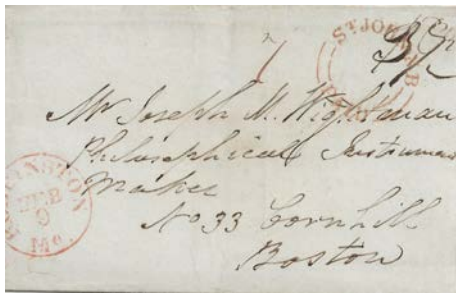 ST JOHN N.B
Mr Joseph M. Wightman
Philosophical Instrument
Maker
No 33 Cornhill
Boston
ROBBINSTON
FEB
9
Me.